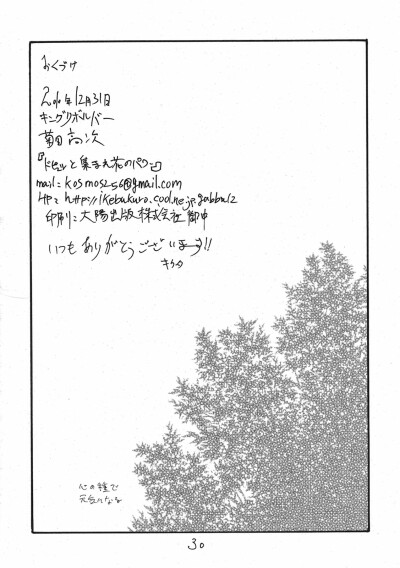 おくづけ
2010年12月31日
キングリボルバー
菊田高次
『ドピュッと集まれ花のパワー』
mail=kosmos256@gmail.com
HP=http://ikebukuro.cool.ne.jp/gabbal2
印刷=大陽出版株式会社御中
いつもありがとうございます!!
キクタ
心の種で
元気になる
30